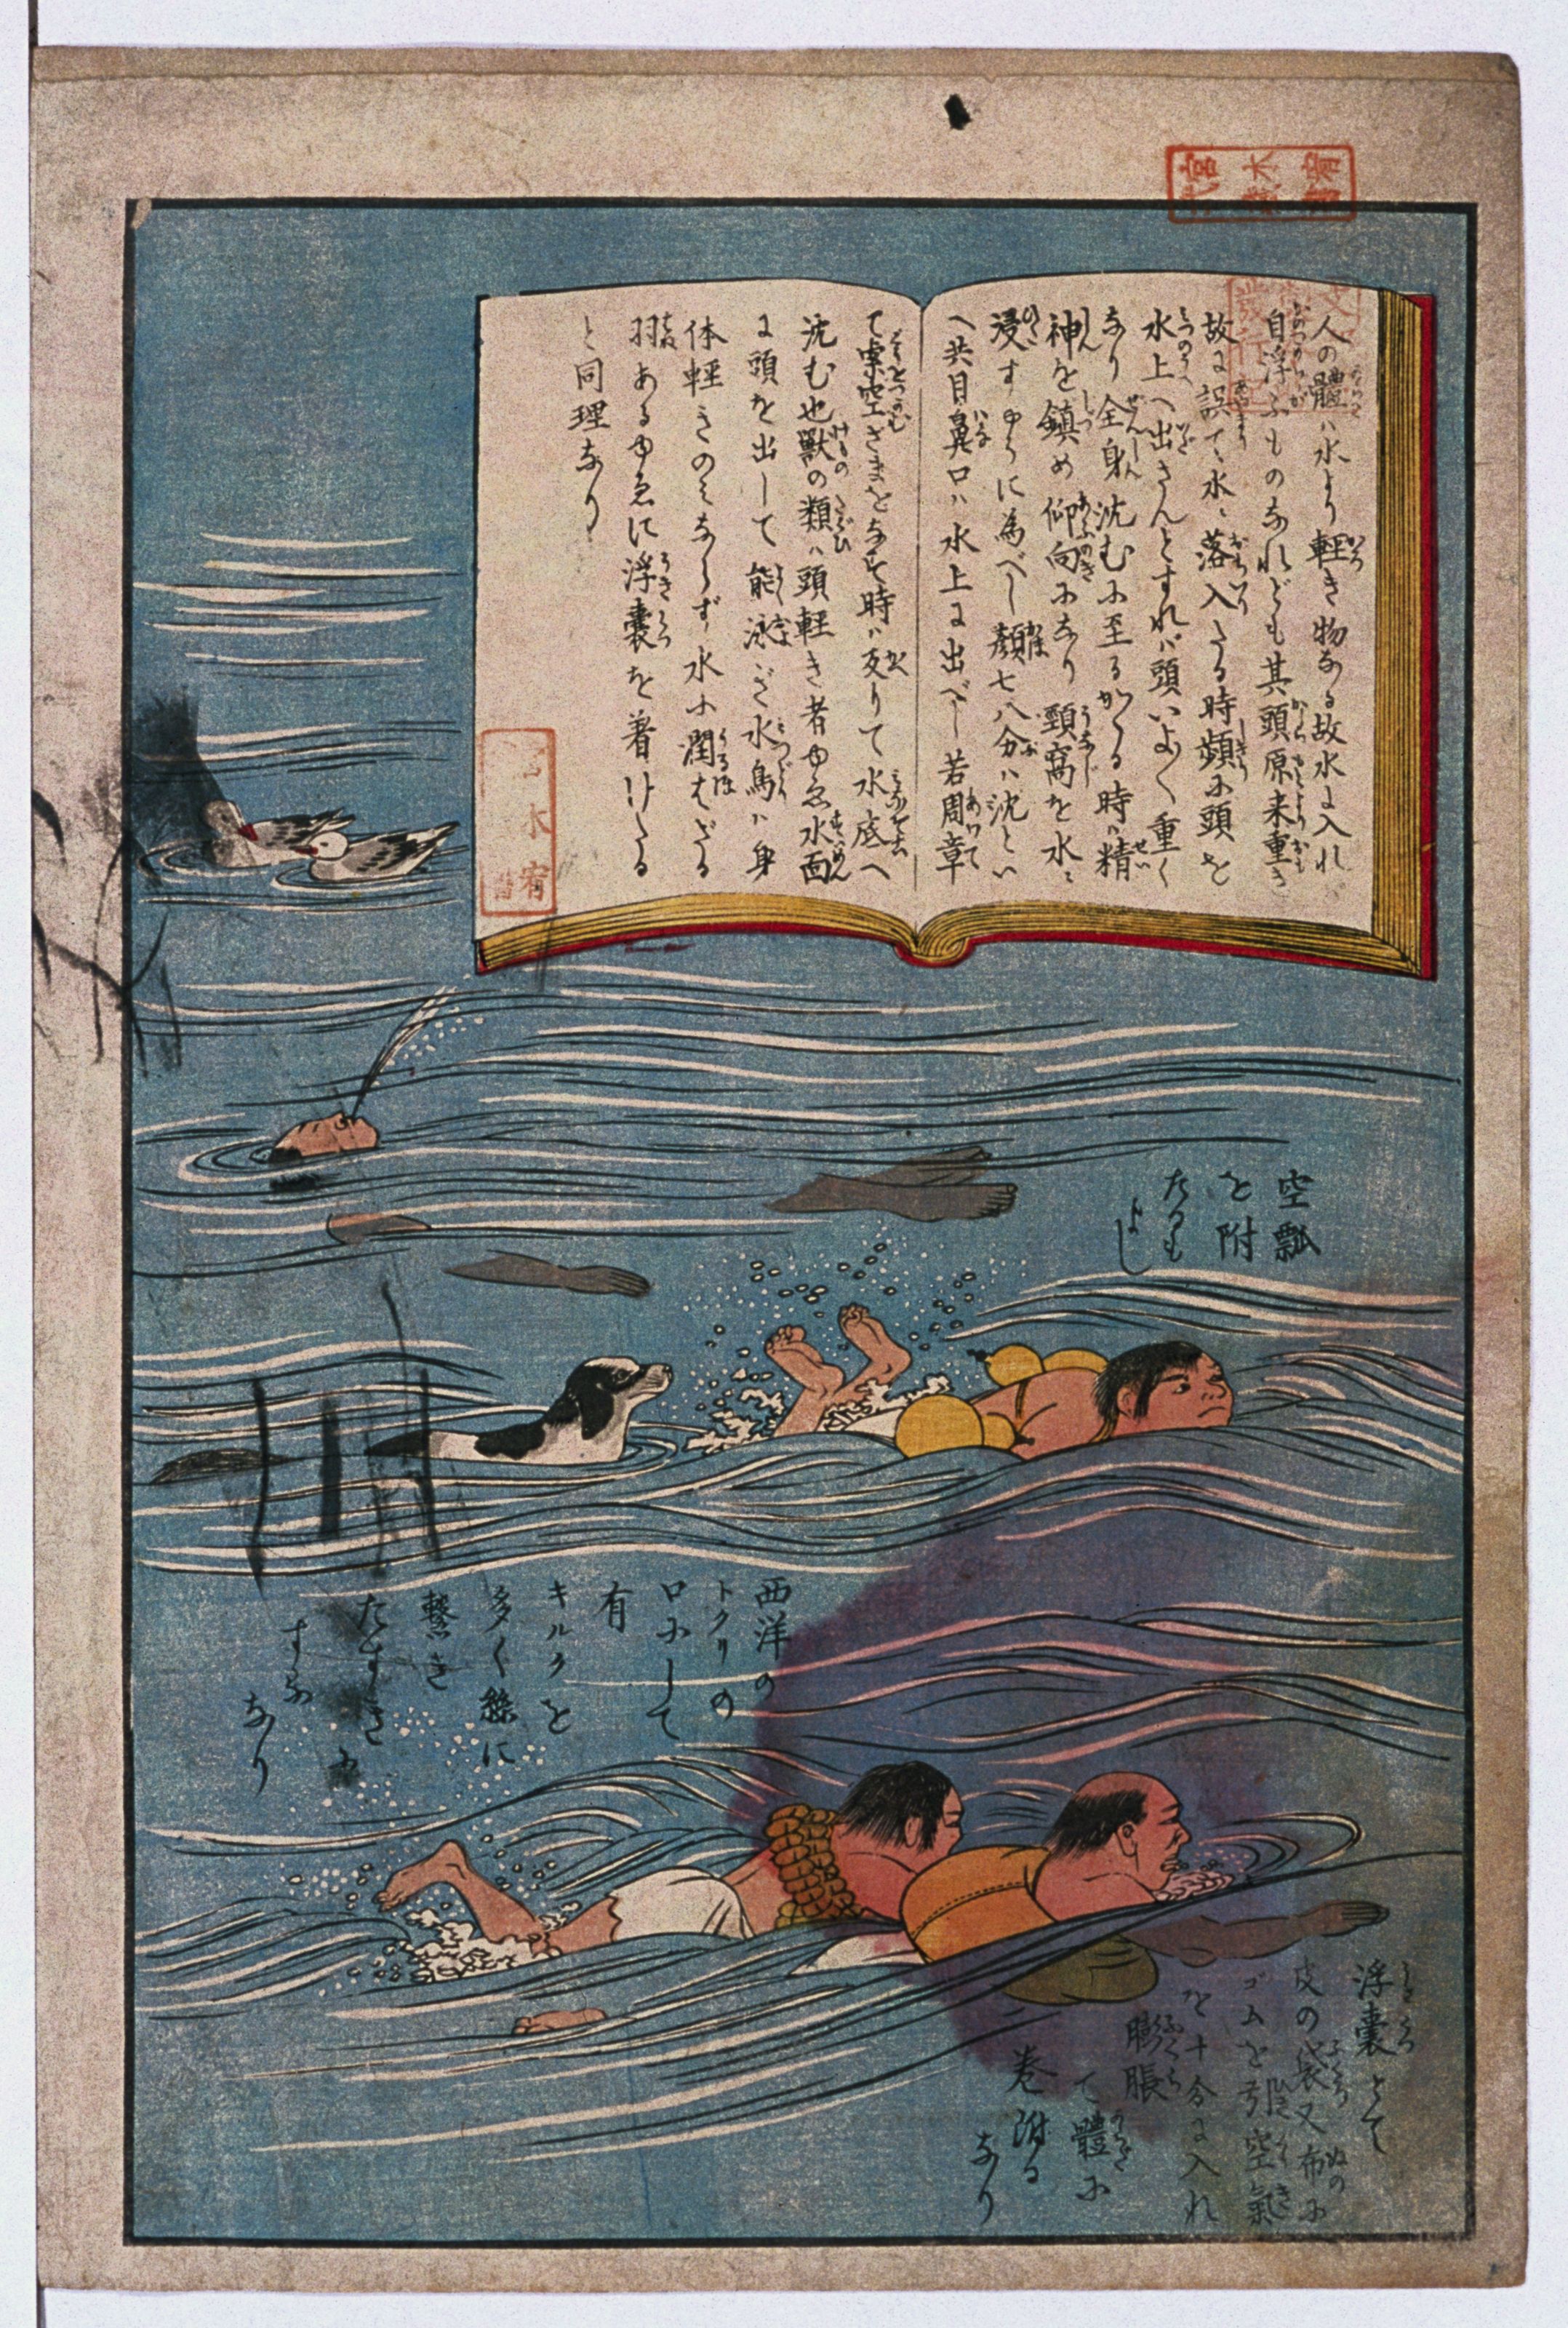 人の體ハ水より軽き物なる故水に入れバ
自浮ふもの𛂁れども其頭原来重き
故に誤て水に落入たる時頻に頭を
水上へ出さんとすれバ頭いよ〳〵重く
なり全身沈むに至るかゝる時ハ精
神を鎮め仰向になり頸窩を水に
浸すやうに為べし顔七八分ハ沈といへ
へ共目鼻口ハ水上に出べし若周章
て虚空ざまをなす時ハ反りて水底へ
沈む也獣の類ハ頭軽き者ゆゑ水面
に頭を出して能泳ぎ水鳥ハ身
体軽きのミならず水に潤はざる
羽あるゆゑに浮嚢を着けたる
と同理なり
空瓢
を附
たるも
よし
西洋の
トクリの
口にして
有
キルクを
多く絲に
繋き
たすきに
する
なり
浮嚢とて
皮の袋又布に
ゴムを引空氣
を十分に入れ
膨脹
て體に
巻附る
なり